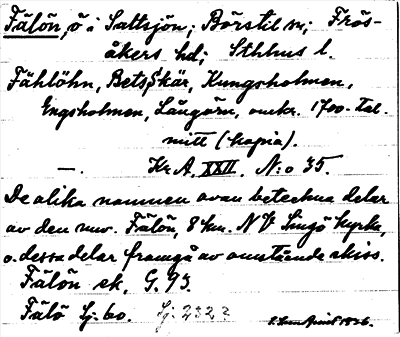 Fälön, ö i Saltsjön; Börstil sn; Frös-
åkers hd; Sthlms l.
Fählöhn, Betsskär, Kungsholmen,
Engsholmen, Långörn, omkr. 1700-tal.
mitt (kopia).
—. Kr. A. XXII. N:o 35.
De olika namnen ovan beteckna delar
av den nuv. Fälön, 8 km. NV Singö kyrka,
o. dessa delar framgå av omstående skiss.
Fälön ek. G. 93.
Fälö Sj. 60. Sj: 2323
1926.